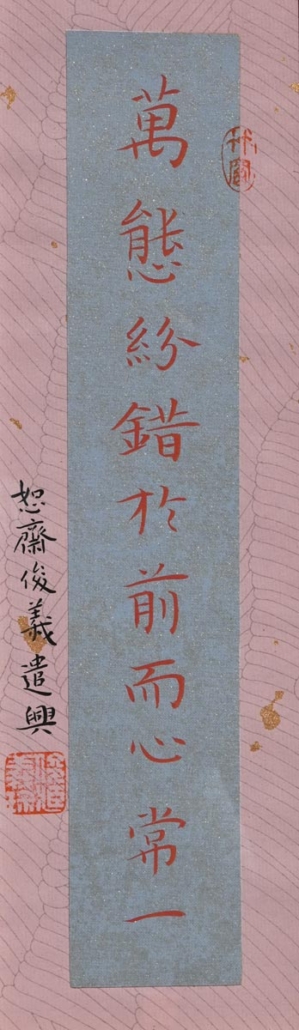 萬態紛錯於前而心常一
恕齋俊義遣興